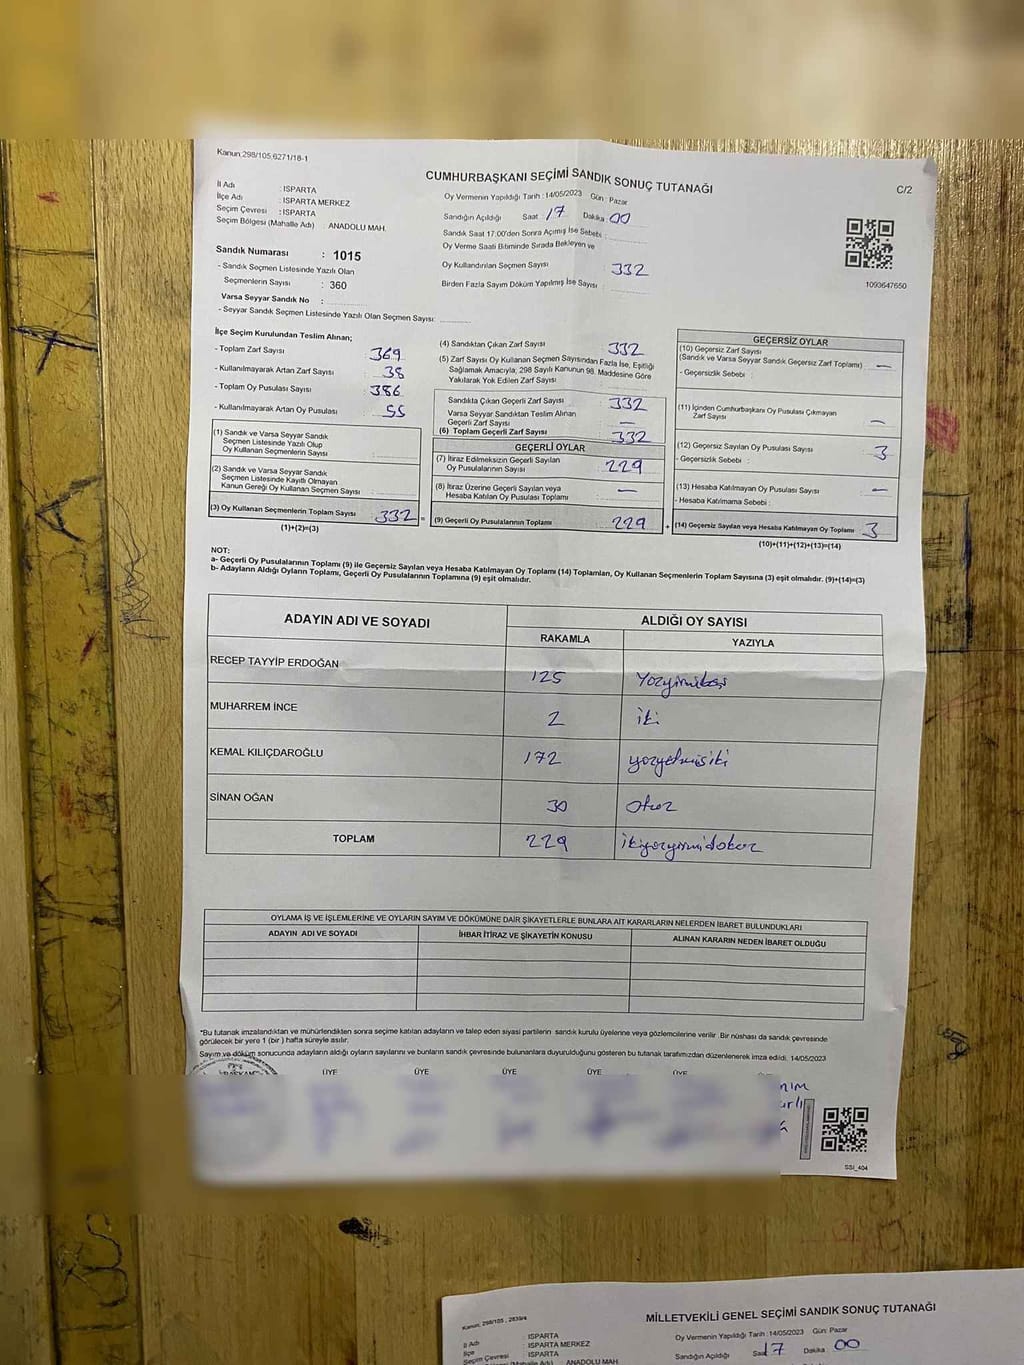 Kanun;298/105,6271/18-1
CUMHURBAŞKANI SEÇİMİ SANDIK SONUÇ TUTANAĞI
C/2
İl Adı : ISPARTA
İlçe Adı : ISPARTA MERKEZ
Seçim Çevresi : ISPARTA
Seçim Bölgesi (Mahalle Adı) : ANADOLU MAH.
Sandık Numarası : 1015
- Sandık Seçmen Listesinde Yazılı Olan
Seçmenlerin Sayısı : 360
Varsa Seyyar Sandık No :
- Seyyar Sandık Seçmen Listesinde Yazılı Olan Seçmen Sayısı:
Oy Vermenin Yapıldığı Tarih : 14/05/2023 Gün : Pazar
Sandığın Açıldığı Saat : 17 Dakika : 00
Sandık Saat 17.00'den Sonra Açımış İse Sebebi :
Oy Verme Saati Bitiminde Sırada Bekleyen ve
Oy Kullandırılan Seçmen Sayısı : 332
Birden Fazla Sayım Döküm Yapılmış İse Sayısı :
1093647650
İlçe Seçim Kurulundan Teslim Alınan;
- Toplam Zarf Sayısı : 369
- Kullanılmayarak Artan Zarf Sayısı : 38
- Toplam Oy Pusulası Sayısı : 386
- Kullanılmayarak Artan Oy Pusulası : 55
(1) Sandık ve Varsa Seyyar Sandık
Seçmen Listesinde Yazılı Olup
Oy Kullanan Seçmenlerin Sayısı :
(2) Sandık ve Varsa Seyyar Sandık
Seçmen Listesinde Kayıtlı Olmayan
Kanun Gereği Oy Kullanan Seçmen Sayısı :
(3) Oy Kullanan Seçmenlerin Toplam Sayısı : 332 =
(1)+(2)=(3)
(4) Sandıktan Çıkan Zarf Sayısı : 332
(5) Zarf Sayısı Oy Kullanan Seçmen Sayısından Fazla İse, Eşitliği
Sağlamak Amacıyla, 298 Sayılı Kanunun 98. Maddesine Göre
Yakılarak Yok Edilen Zarf Sayısı :
Sandıkta Çıkan Geçerli Zarf Sayısı : 332
Varsa Seyyar Sandıktan Teslim Alınan
Geçerli Zarf Sayısı : —
(6) Toplam Geçerli Zarf Sayısı : 332
GEÇERLİ OYLAR
(7) İtiraz Edilmeksizin Geçerli Sayılan
Oy Pusulalarının Sayısı : 229
(8) İtiraz Üzerine Geçerli Sayılan veya
Hesaba Katılan Oy Pusulası Toplamı : —
(9) Geçerli Oy Pusulalarının Toplamı : 229 +
GEÇERSİZ OYLAR
(10) Geçersiz Zarf Sayısı
(Sandık ve Varsa Seyyar Sandık Geçersiz Zarf Toplamı) : —
- Geçersizlik Sebebi :
(11) İçinden Cumhurbaşkanı Oy Pusulası Çıkmayan
Zarf Sayısı : —
(12) Geçersiz Sayılan Oy Pusulası Sayısı : 3
- Geçersizlik Sebebi :
(13) Hesaba Katılmayan Oy Pusulası Sayısı : —
- Hesaba Katılmama Sebebi :
(14) Geçersiz Sayılan veya Hesaba Katılmayan Oy Toplamı : 3
(10)+(11)+(12)+(13)=(14)
NOT:
a- Geçerli Oy Pusulalarının Toplamı (9) ile Geçersiz Sayılan veya Hesaba Katılmayan Oy Toplamı (14) Toplamları, Oy Kullanan Seçmenlerin Toplam Sayısına (3) eşit olmalıdır. (9)+(14)=(3)
b- Adayların Aldığı Oyların Toplamı, Geçerli Oy Pusulalarının Toplamına (9) eşit olmalıdır.
ADAYIN ADI VE SOYADI ALDIĞI OY SAYISI
RAKAMLA YAZIYLA
RECEP TAYYİP ERDOĞAN 125 Yüzyirmibeş
MUHARREM İNCE 2 iki
KEMAL KILIÇDAROĞLU 172 yüzyetmişiki
SİNAN OĞAN 30 Otuz
TOPLAM 229 ikiyüzyirmidokuz
OYLAMA İŞ VE İŞLEMLERİNE VE OYLARIN SAYIM VE DÖKÜMÜNE DAİR ŞİKAYETLERLE BUNLARA AİT KARARLARIN NELERDEN İBARET BULUNDUKLARI
ADAYIN ADI VE SOYADI İHBAR İTİRAZ VE ŞİKAYETİN KONUSU ALINAN KARARIN NEDEN İBARET OLDUĞU
*Bu tutanak imzalandıktan ve mühürlendikten sonra seçime katılan adayların ve talep eden siyasi partilerin sandık kurulu üyelerine veya gözlemcilerine verilir. Bir nüshası da sandık çevresinde
görülecek bir yere 1 (bir ) hafta süreyle asılır.
Sayım ve döküm sonucunda adayların aldığı oyların sayılarını ve bunların sandık çevresinde bulunanlara duyurulduğunu gösteren bu tutanak tarafımızdan düzenlenerek imza edildi. 14/05/2023
BAŞKAN ÜYE ÜYE ÜYE ÜYE ÜYE
SSI_404
Kanun; 298/105 , 2839/4
MİLLETVEKİLİ GENEL SEÇİMİ SANDIK SONUÇ TUTANAĞI
İl Adı : ISPARTA
İlçe : ISPARTA MERKEZ
Seçim Çevresi : ISPARTA
(Mahalle Adı) : ANADOLU MAH.
Oy Vermenin Yapıldığı Tarih : 14/05/2023 Gün: Pazar
Sandığın Açıldığı Saat 17 Dakika : 00